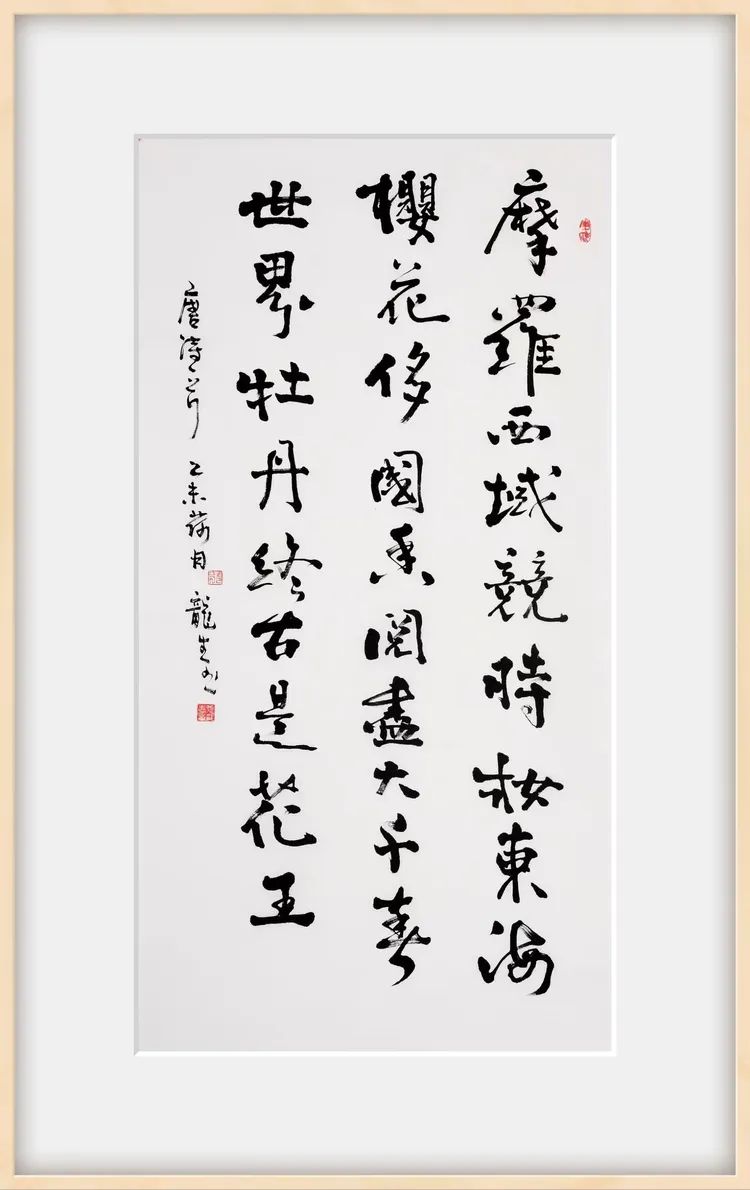 摩羅西域競時妝東海
櫻花侈國香閱盡大千春
世界牡丹終古是花王
唐詩一首 乙未荷月 龍生書